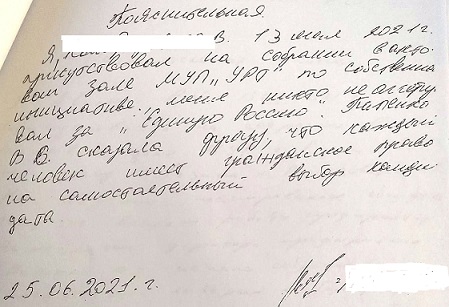 Пояснительная.
Я, В. 13 мая 2021 г.
присутствовал на собрании в акто-
вом зале МУП „УРТ" по собственной
инициативе, меня никто не агитиро-
вал за „Единую Россию".
В В. сказала фразу, что каждый
человек имеет гражданское право
на самостоятельный выбор канди-
дата.
25.06.2021. г.